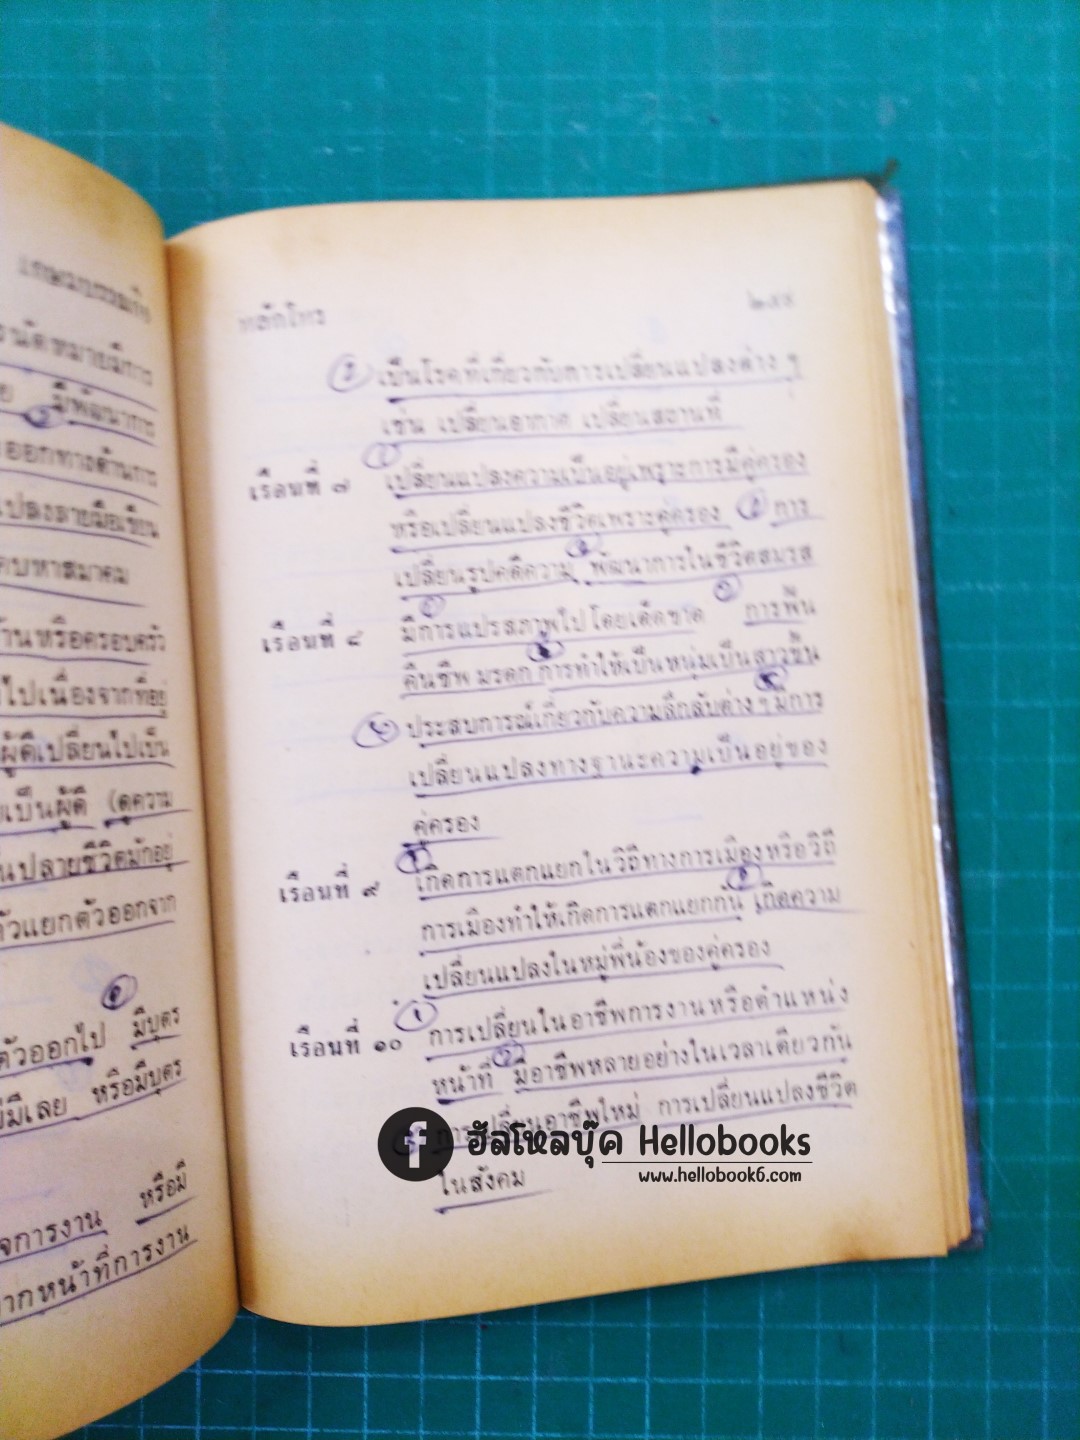 เกษมบรรณกิจ
นัดหมายมีการ
มีพัฒนาการ
ออกทางด้านการ
แปลงลายมือเขียน
คบหาสมาคม
บ้านหรือครอบครัว
ไปเนื่องจากที่อยู่
ผู้ดีเปลี่ยนไปเป็น
เป็นผู้ดี (ดูความ
ปลายชีวิตมักอยู่
ตัวแยกตัวออกจาก
๑
ตัวออกไป มีบุตร
ไม่มีเลย หรือมีบุตร
การงาน หรือมี
จากหน้าที่การงาน
หลักโหร
เป็นโรคที่เกี่ยวกับการเปลี่ยนแปลงต่าง ๆ
เช่น เปลี่ยนอากาศ เปลี่ยนสถานที่
เรือนที่ ๗ เปลี่ยนแปลงความเป็นอยู่เพราะการมีคู่ครอง
หรือเปลี่ยนแปลงชีวิตเพราะคู่ครอง การ
เปลี่ยนรูปคดีความ พัฒนาการในชีวิตสมรส
เรือนที่ ๘ มีการแปรสภาพไปโดยเด็ดขาด การฟื้น
คืนชีพ มรดก การทำให้เป็นหนุ่มเป็นสาวขึ้น
ประสบการณ์เกี่ยวกับความลึกลับต่าง ๆ มีการ
เปลี่ยนแปลงทางฐานะความเป็นอยู่ของ
คู่ครอง
เรือนที่ ๙ เกิดการแตกแยกในวิถีทางการเมืองหรือวิถี
การเมืองทำให้เกิดการแตกแยกกัน เกิดความ
เปลี่ยนแปลงในหมู่พี่น้องของคู่ครอง
เรือนที่ ๑๐ การเปลี่ยนในอาชีพการงานหรือตำแหน่ง
หน้าที่ มีอาชีพหลายอย่างในเวลาเดียวกัน
การเปลี่ยนอาชีพใหม่ การเปลี่ยนแปลงชีวิต
ในสังคม
f ฮัลโหลบุ๊ค Hellobooks
www.hellobook6.com